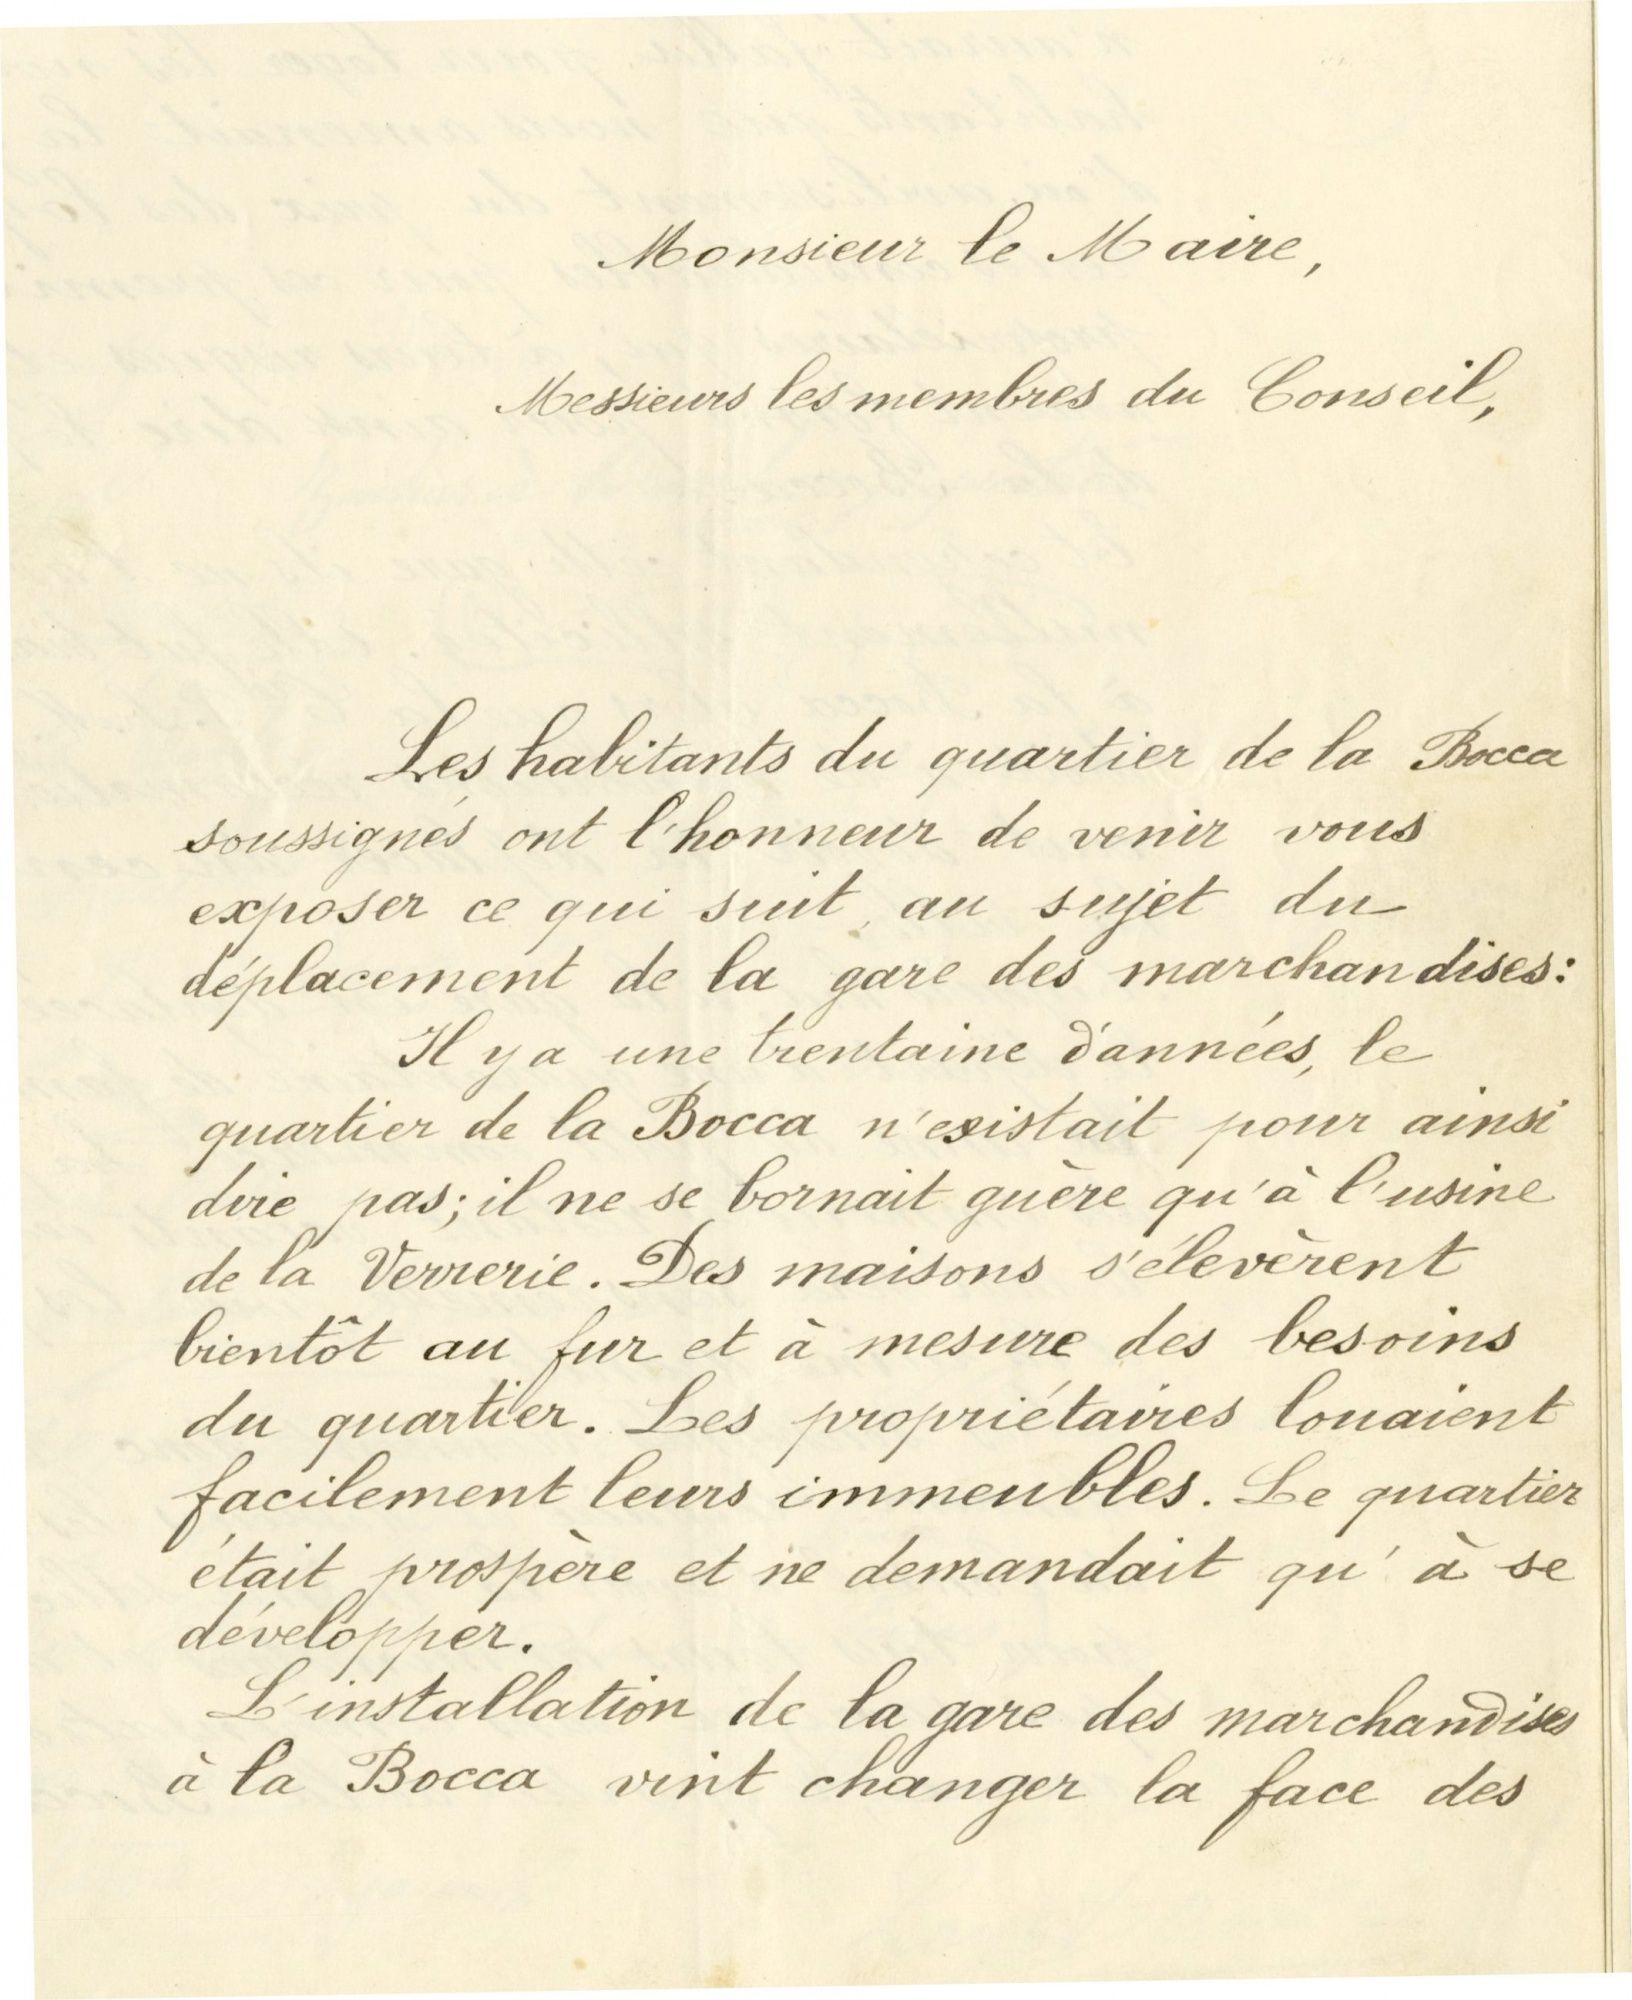 Monsieur le Maire,
Messieurs les membres du Conseil,
Les habitants du quartier de la Bocca
soussignés ont l'honneur de venir vous
exposer ce qui suit, au sujet du
déplacement de la gare des marchandises:
Il y a une trentaine d'années, le
quartier de la Bocca n'existait pour ainsi
dire pas; il ne se bornait guère qu'à l'usine
de la Verrerie. Des maisons s'élevèrent
bientôt au fur et à mesure des besoins
du quartier. Les propriétaires louaient
facilement leurs immeubles. Le quartier
était prospère et ne demandait qu'à se
développer.
L'installation de la gare des marchandises
à la Bocca vint changer la face des